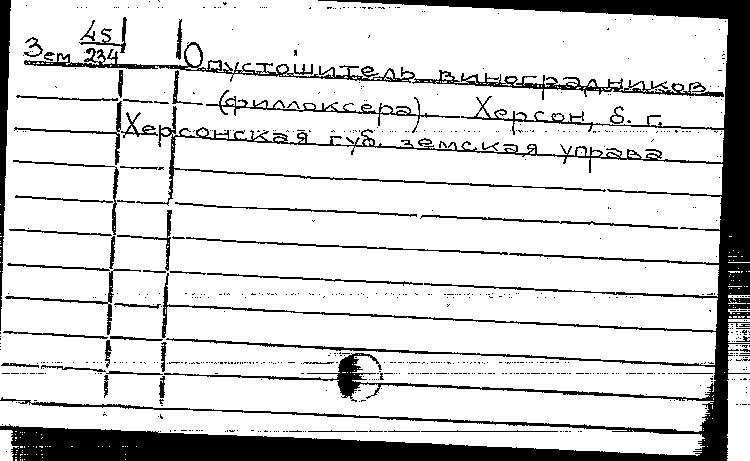 Зем 45/234 Опустошитель виноградников
(филлоксера). Херсон, б. г.
Херсонская губ. земская управа